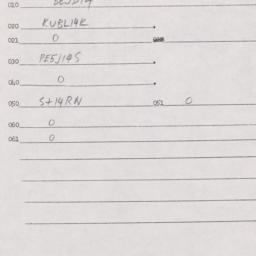 020 KUBL14K
021 0
030 PE5J14S
040 0
050 S+14RN 051 0
060 0
061 0